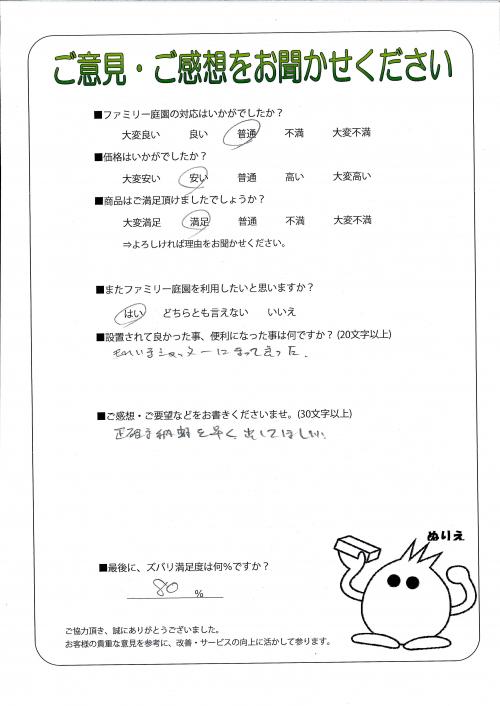 ご意見・ご感想をお聞かせください
■ファミリー庭園の対応はいかがでしたか？
大変良い 良い 普通 不満 大変不満
■価格はいかがでしたか？
大変安い 安い 普通 高い 大変高い
■商品はご満足頂けましたでしょうか？
大変満足 満足 普通 不満 大変不満
⇒よろしければ理由をお聞かせください。
■またファミリー庭園を利用したいと思いますか？
はい どちらとも言えない いいえ
■設置されて良かった事、便利になった事は何ですか？(20文字以上)
シャッターに
■ご感想・ご要望などをお書きくださいませ。(30文字以上)
正確な納期を早く出してほしい。
ぬりえ
■最後に、ズバリ満足度は何％ですか？
80 %
ご協力頂き、誠にありがとうございました。
お客様の貴重な意見を参考に、改善・サービスの向上に活かして参ります。